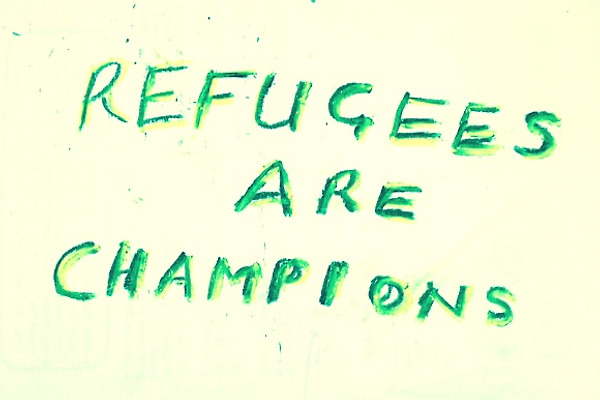 REFUGEES
ARE
CHAMPIONS